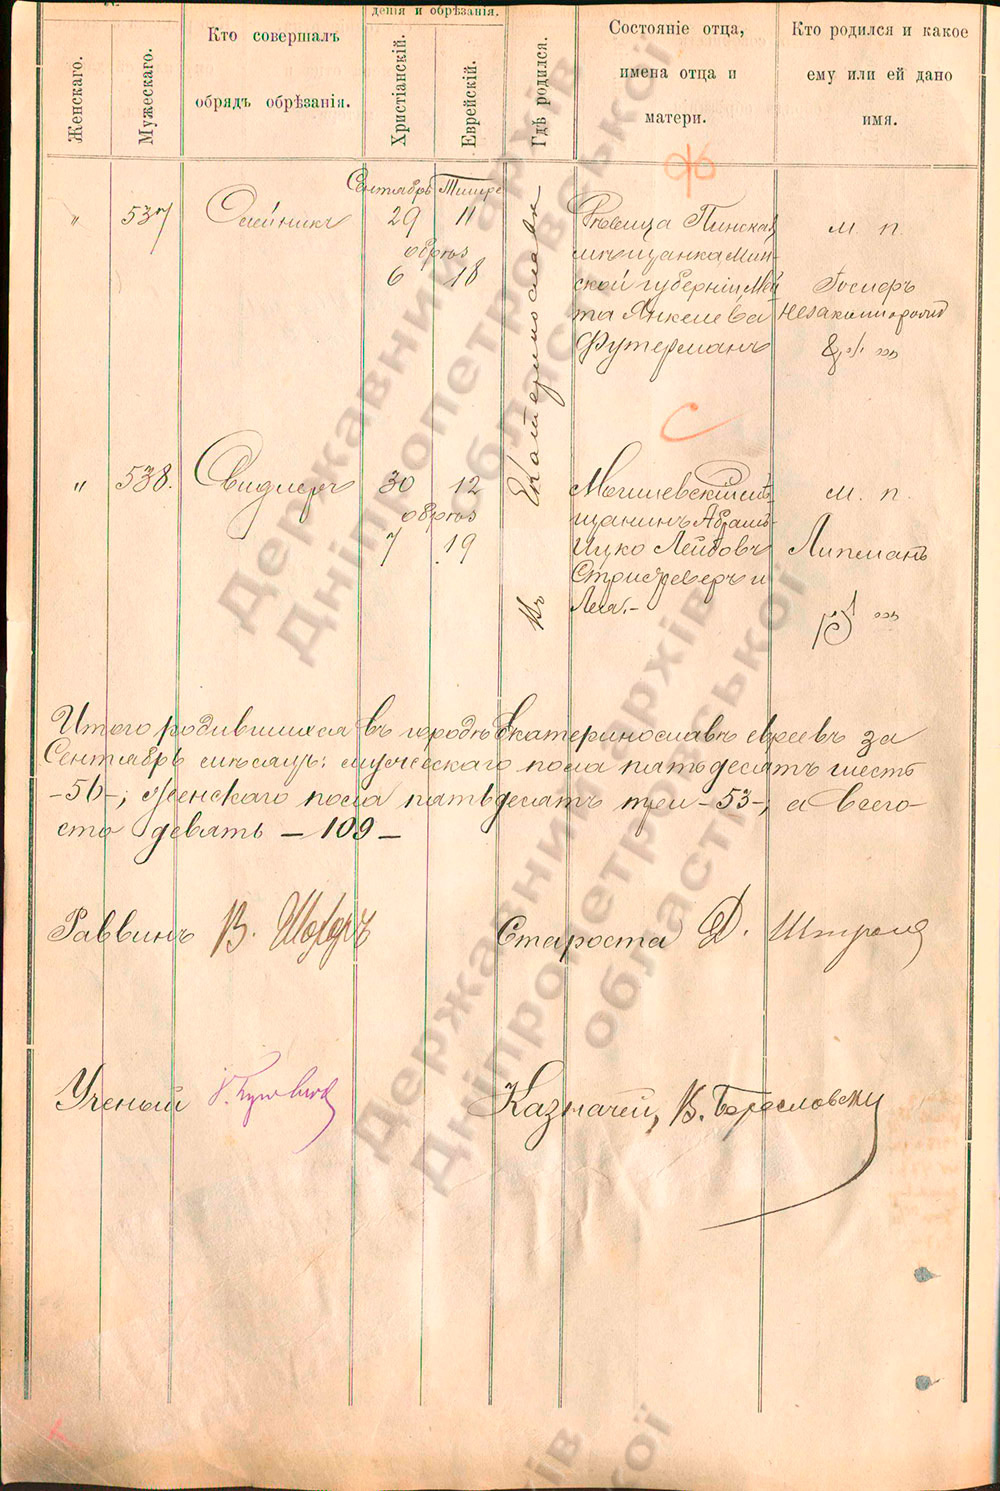 дения и обрѣзанія.
Женскаго.
Мужескаго.
Кто совершалъ
обрядъ обрѣзанія.
Христіанскій.
Еврейскій.
Гдѣ родился.
Состояніе отца,
имена отца и
матери.
Кто родился и какое
ему или ей дано
имя.
Сентябрь Тишре
" 537 Олейникъ 29 11 Дѣвица Пинская м. п.
обрѣз мѣщанка Мин-
6 18 ской губерніи Іосифъ
та Янкелева незаконнорожд
Футерманъ
" 538. Свидлеръ 30 12 Могилевскій мѣ- м. п.
обрѣз щанинъ Абрамъ
7 19 Ицко Лейбовъ Липманъ
и
Леа.-
Въ Екатеринославѣ
Итого родившихся въ городѣ Екатеринославѣ евреевъ за
Сентябрь мѣсяцъ: мужескаго пола пятьдесятъ шесть
-56-; женскаго пола пятьдесятъ три -53-, а всего-
сто девять - 109 -
Раввинъ В. Шохоръ Староста Д.
Ученый Казначей, В.
Державний архів
Дніпропетровської
області
Державний архів
Дніпропетровської
області